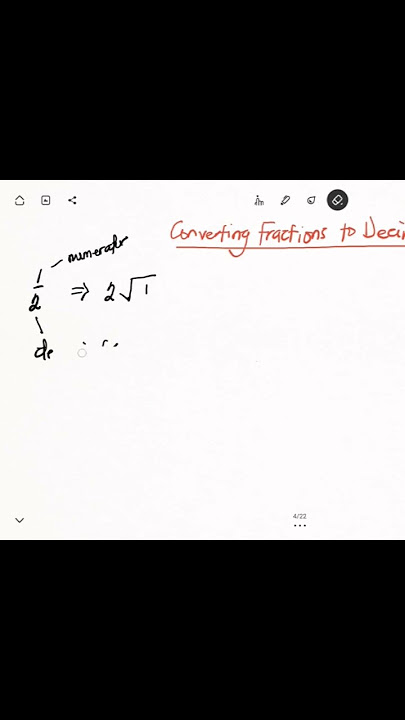 Converting Fractions to Deci
numerator
1
2
⇒ 2√1
de
4/22